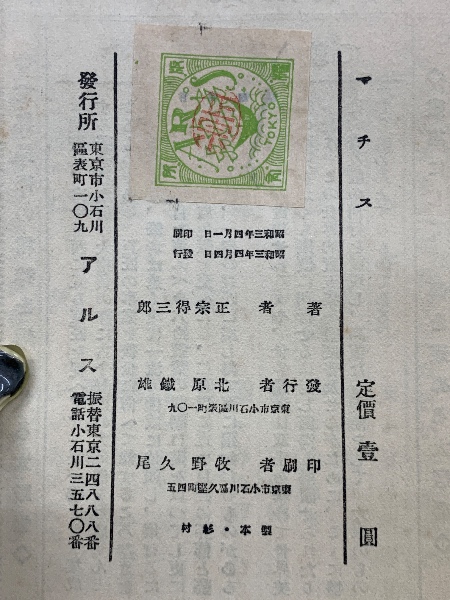 マチス
定價壹圓
ARS
TOKYO
昭和三年四月一日 印刷
昭和三年四月四日 發行
著者 正宗得三郎
發行者 北原鐵雄
東京市小石川區表町一〇九
印刷者 牧野久尾
東京市小石川區久堅町四五
製本・杉村
發行所
東京市小石川
區表町一〇九
アルス
振替東京二四八八八番
電話小石川三五七〇番